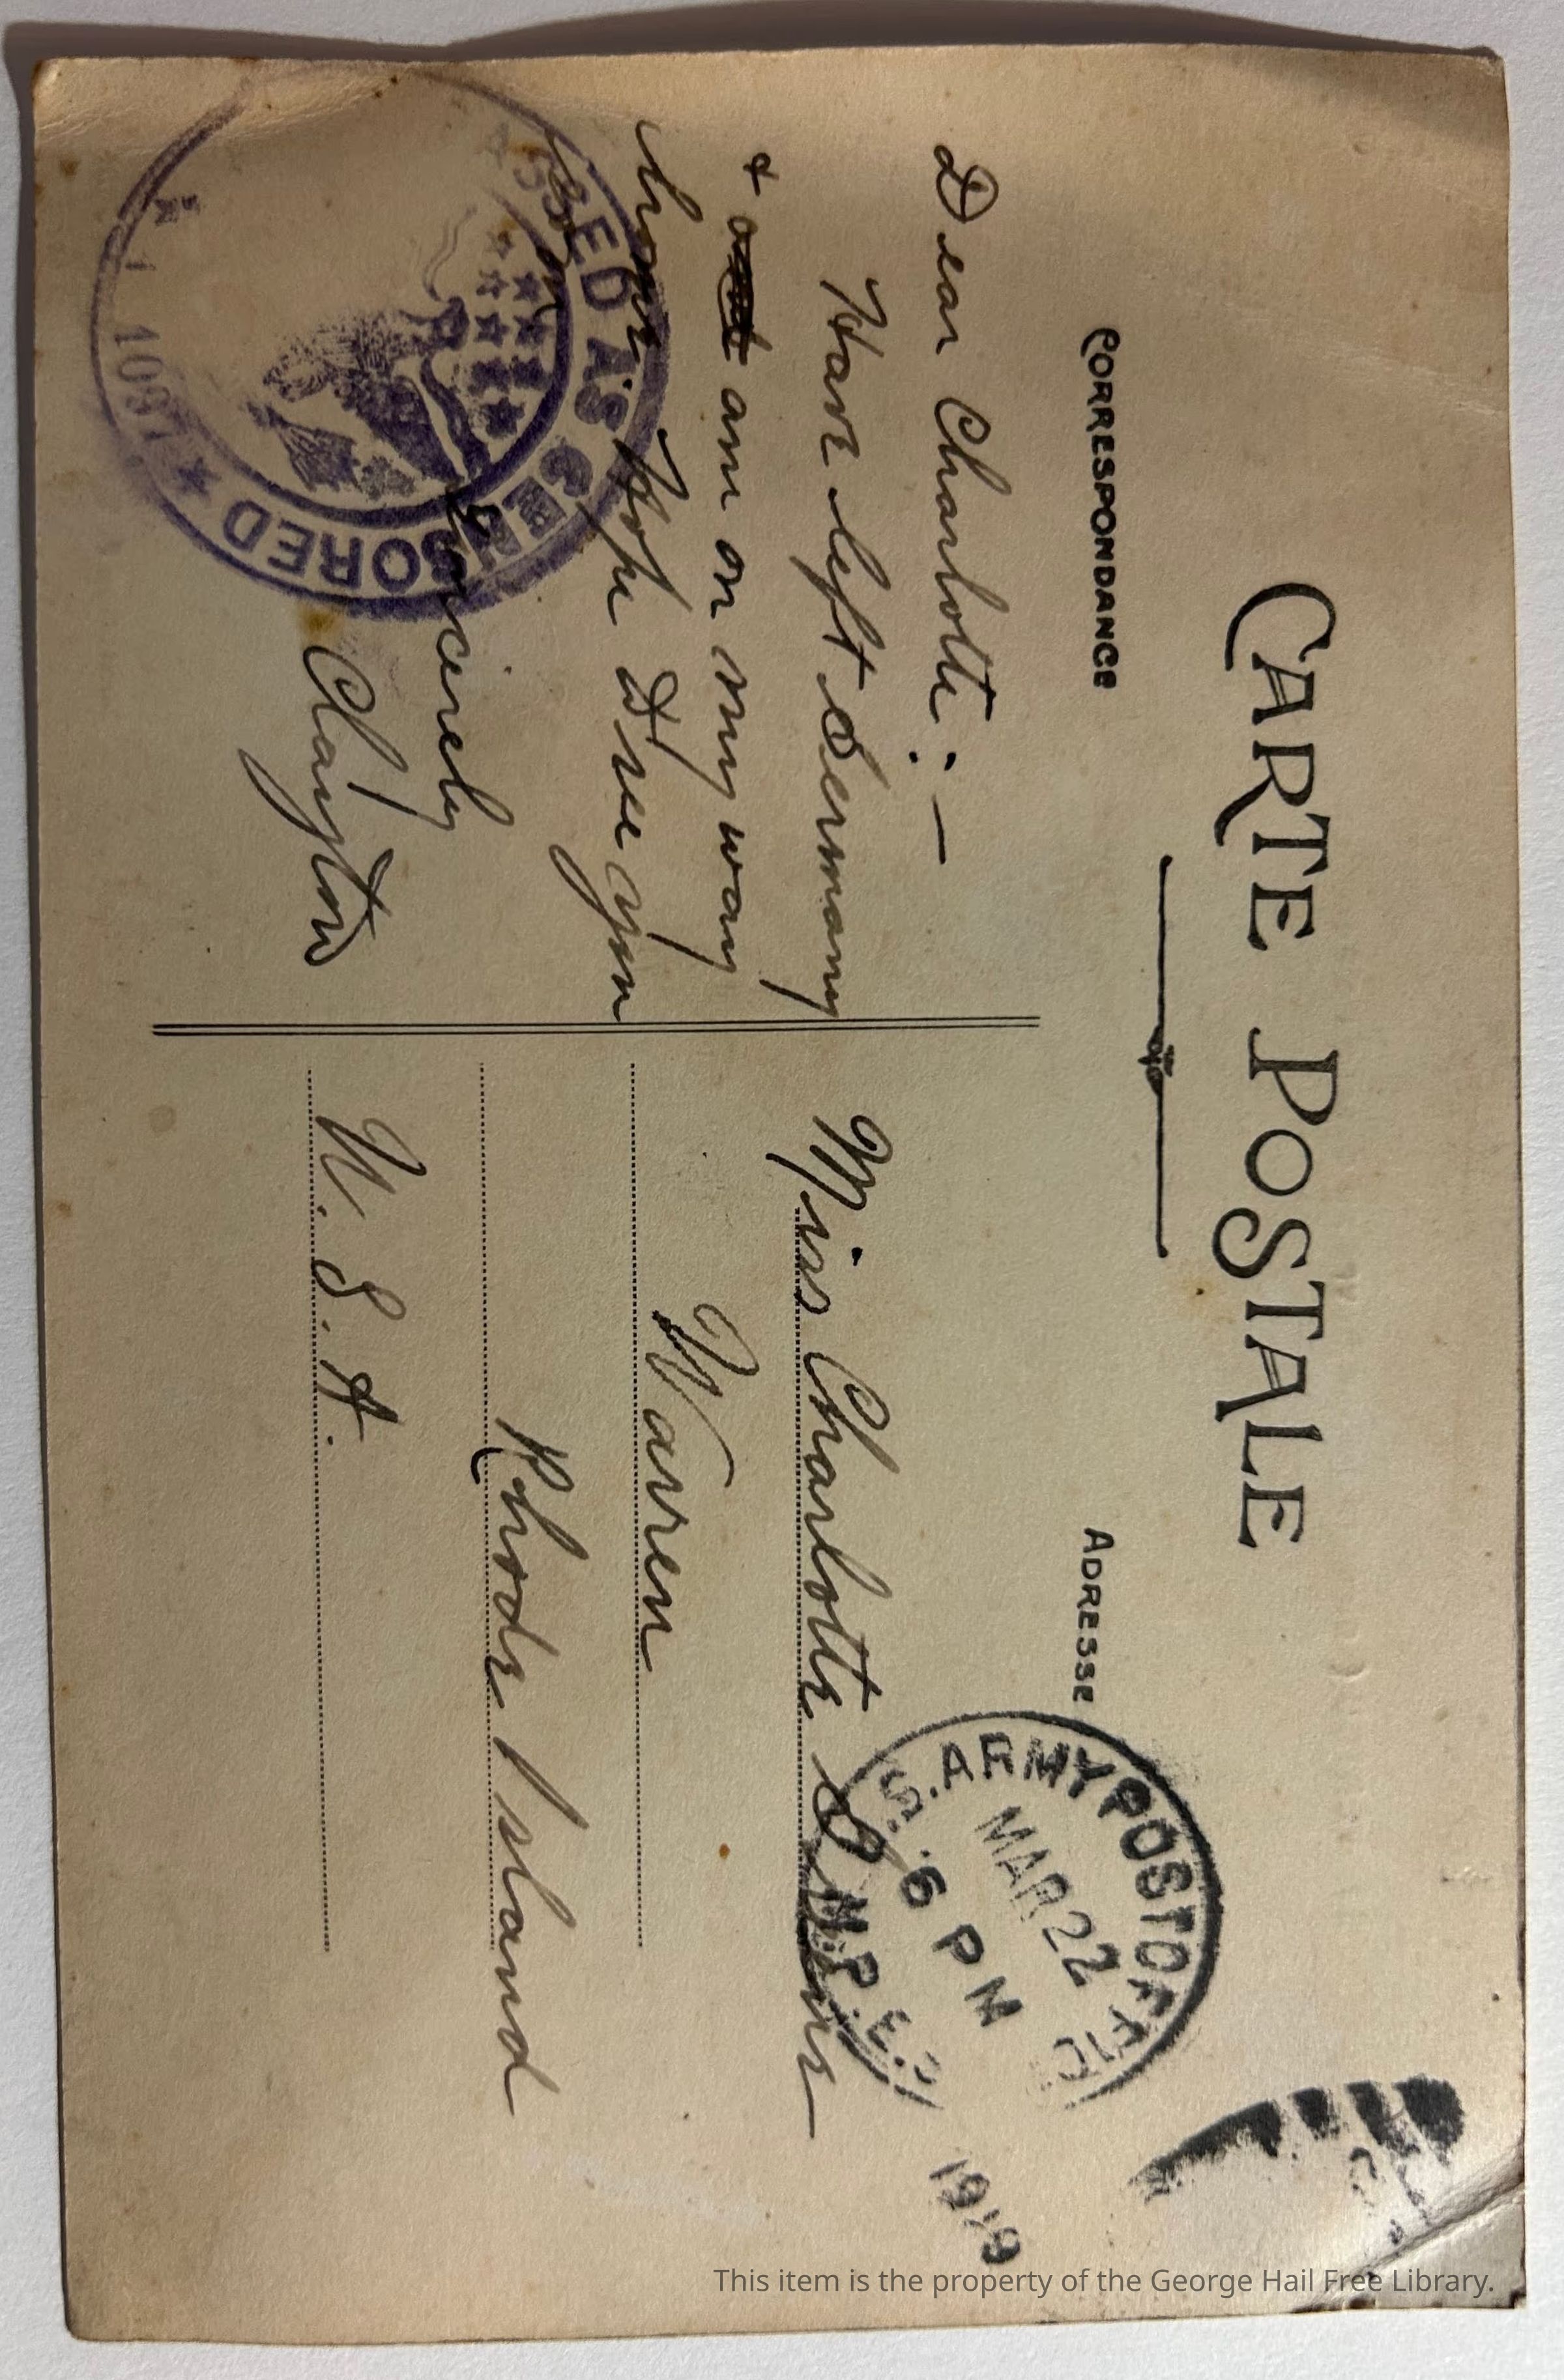 CARTE POSTALE
CORRESPONDANCE
ADRESSE
Dear Charlotte:—
Have left Germany
& am on my way
home Hope I see you
Soon
Sincerely
Clayton
Miss Charlotte
Warren
Rhode Island
U.S.A.
S. ARMY POST OFFICE
MAR 22
6 PM
M.P.E.
1919
SSED AS CENSORED
This item is the property of the George Hail Free Library.